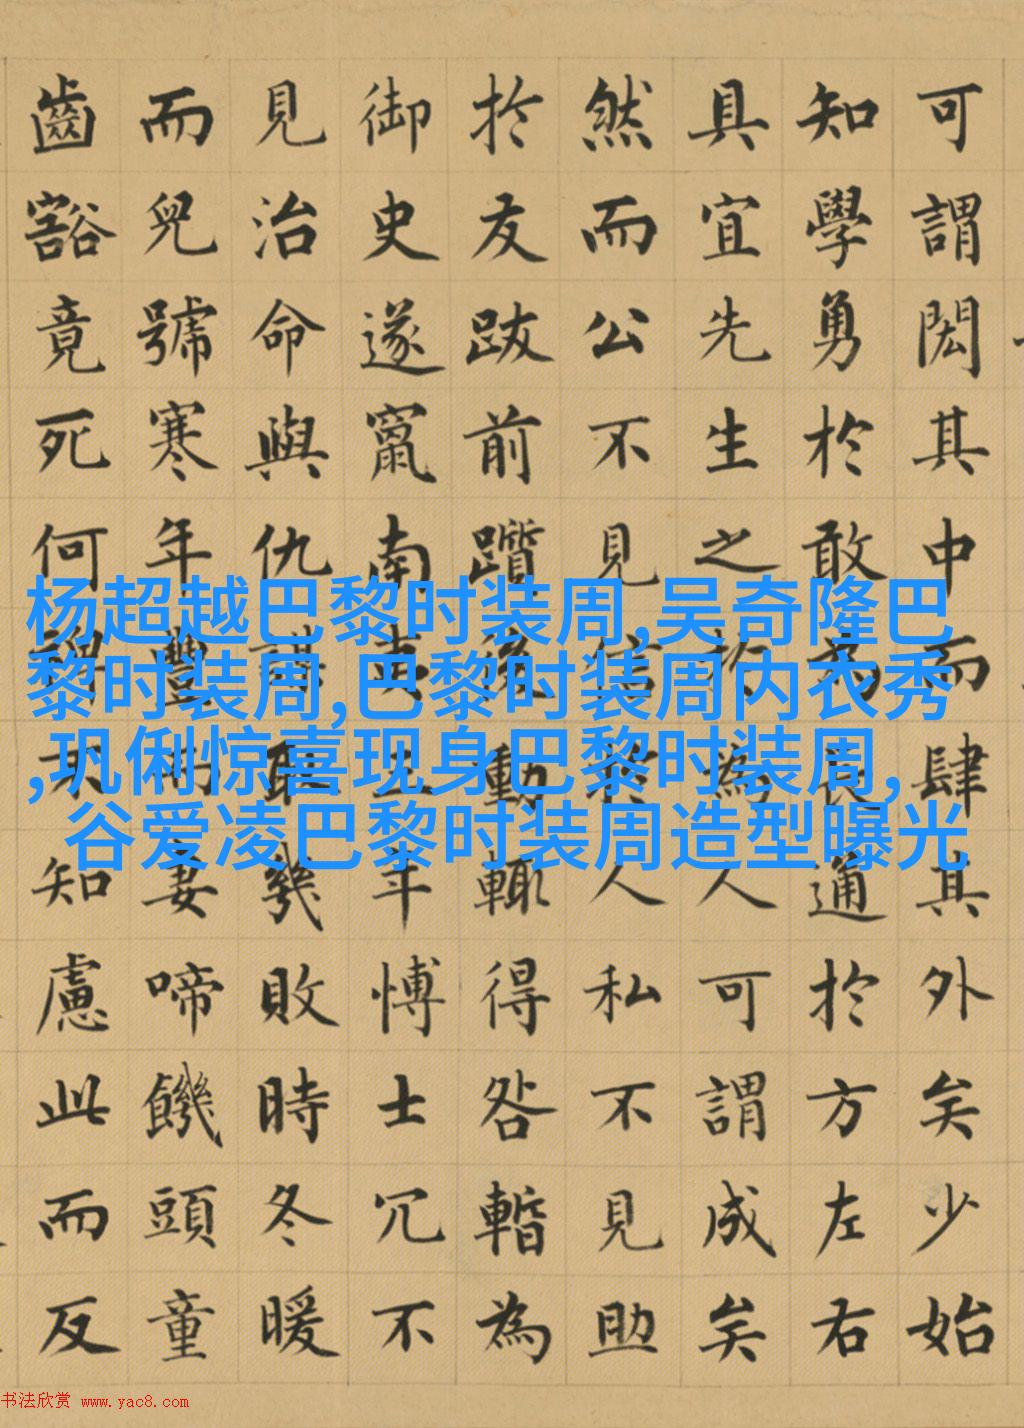 可謂閎其中而肆其外矣少始
知學勇於敢為長通於方左右
具宜先生之於為人可謂成矣
然而公不見信於人私不見助
於友跋前躓後動輒得咎暫為
御史遂竄南夷三年博士冗不
見治命與仇謀取幾敗時冬暖
而兒號寒年豐而妻啼饑頭童
齒豁竟死何裨不知慮此而反
杨超越巴黎时装周,吴奇隆巴
黎时装周,巴黎时装周内衣秀
,巩俐惊喜现身巴黎时装周,
谷爱凌巴黎时装周造型曝光
书法欣赏 www.yac8.com